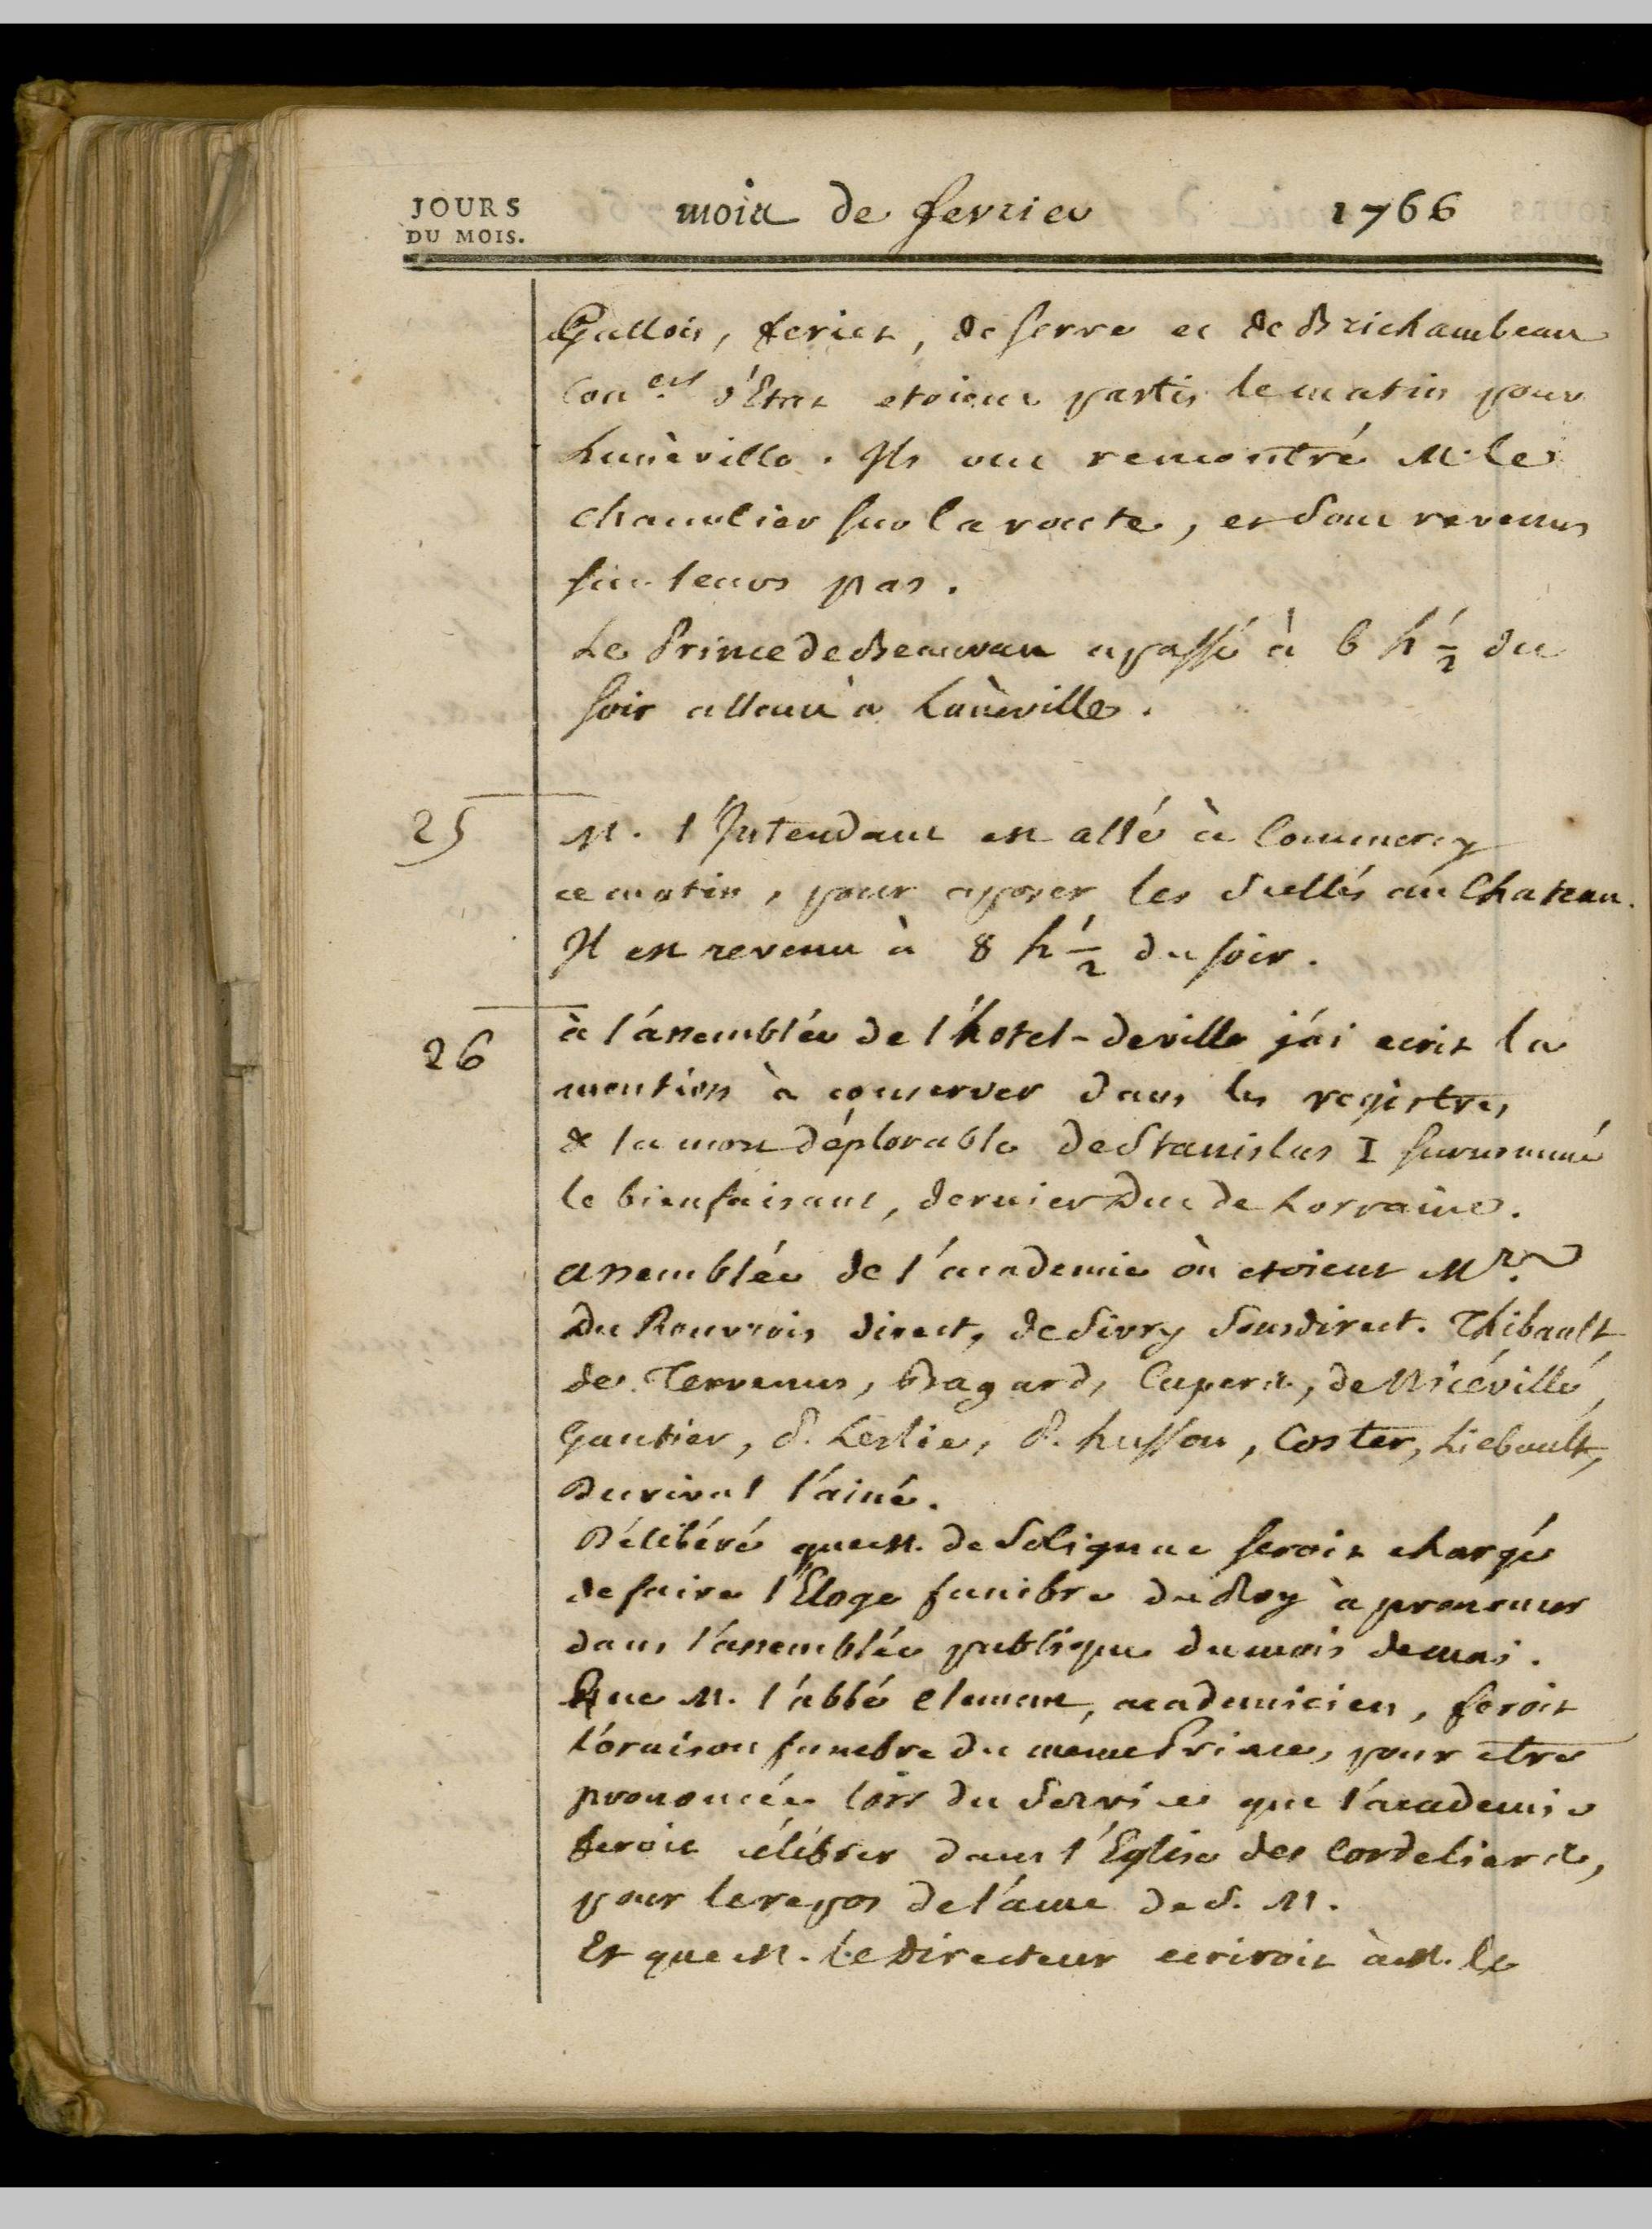 JOURS
DU MOIS.
mois de fevrier 1766
Gallois, feriet, de serre et de Brichambeau
Con.ers d'Etat etoient partis le matin pour
Lunèville. Ils ont rencontré M. le
chancelier sur la route, et sont revenus
sur leurs pas.
Le Prince de Beauvau a passé à 6 h 1/2 du
soir allant à Lunèville.
25 M. l'Intendant est allé à Commercy
ce matin, pour aposer les scellés au Chateau.
Il est revenu à 8 h 1/2 du soir.
26 à l'assemblée de l'hotel-de ville j'ai ecrit la
mention à conserver dans les registres
de la mort déplorable de Stanislas I surnommé
le bienfaisant, dernier Duc de Lorraine.
assemblée de l'academie où etoient Mrs.
Du Rouvrois direct, de Sivry Sousdirect. Thibault,
de Tervenus, Bagard, Cupers, de Nicéville,
Gautier, P. Leslie, P. husson, Coster, Liebault,
Durival l'ainé.
Délibéré que M. de Solignac seroit chargé
de faire l'Eloge funèbre du Roy à prononcer
dans l'assemblée publique du mois de mai.
Que M. l'abbé clement, academicien, feroit
l'oraison funebre du meme Prince, pour etre
prononcée lors du Service que l'academie
feroit célébrer dans l'Eglise des Cordeliers,
pour le repos de l'ame de S. M.
Et que M. le Directeur ecriroit à M. le